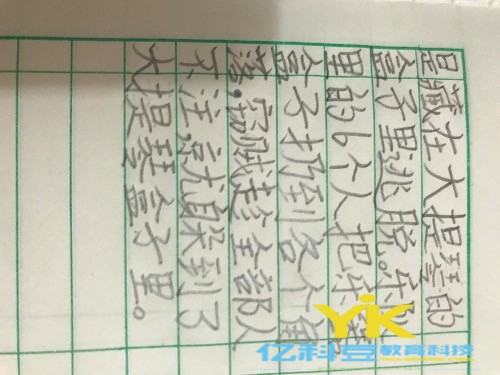 是藏在大提琴的
盒子里逃脱。乐队
里的6个人把乐
盒子扔到各个角
落,窃贼趁全部人
不注,就躲到了
大提琴盒子里。
教育科技